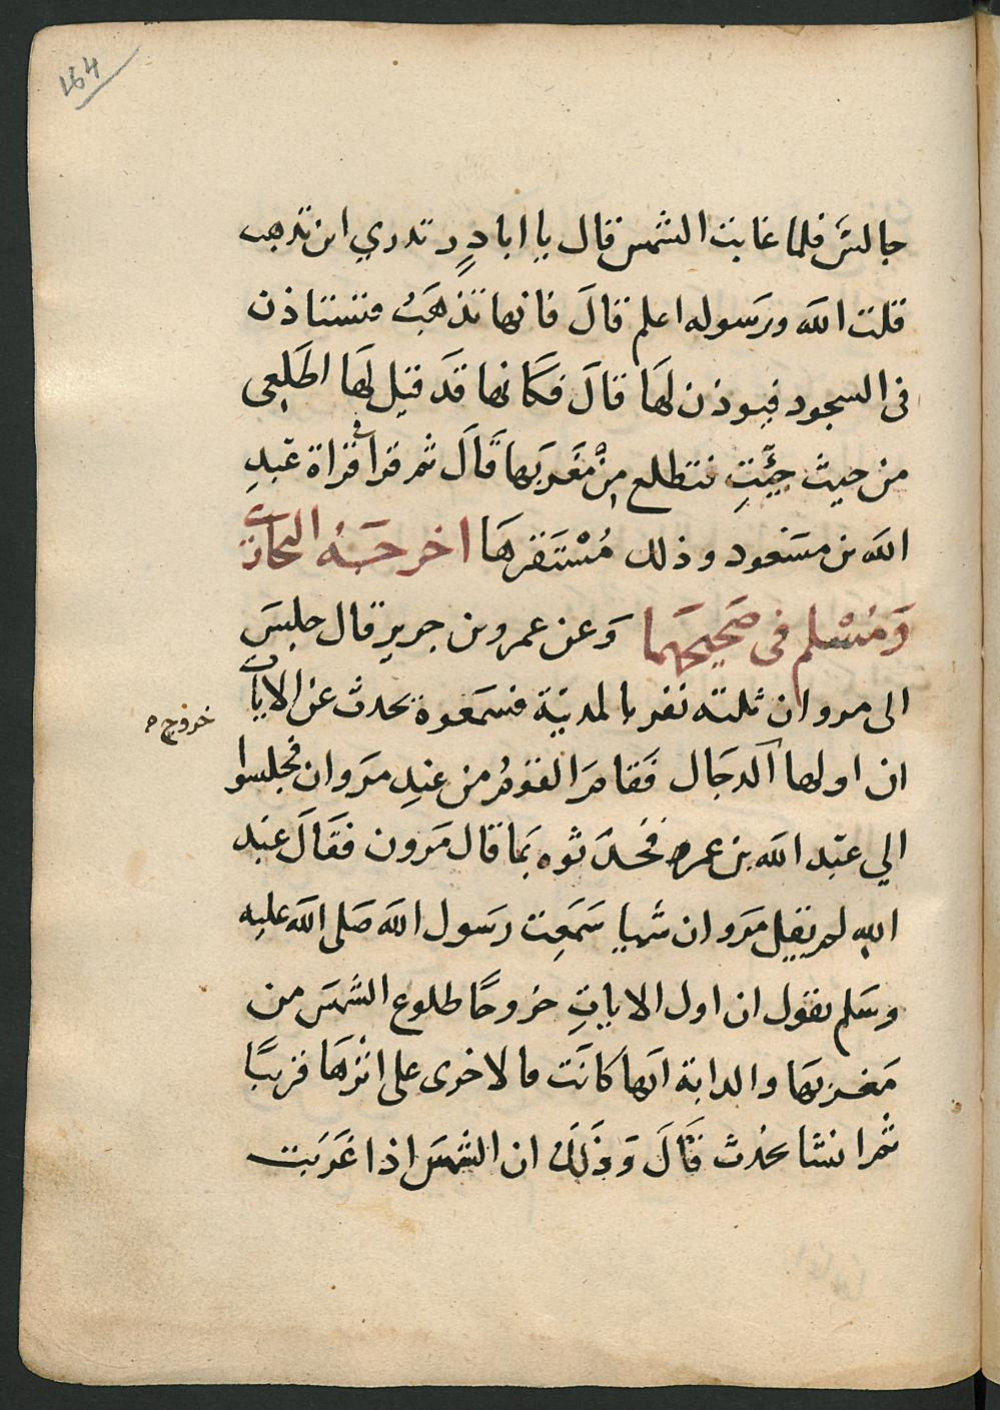 164
جالسٌ فلما غابت الشمس قال يا ابا درٍ تدري اين تذهب
قلت الله ورَسوله اعلم قالَ فانها تذهَبُ فتستاذن
فى السجود فيوذن لهَا قالَ فكَانها قدَ قيل لهَا اطلِعِى
من حيث جِيّتِ فتطلع مِنْ مغَربَها قَالَ ثم قرا فى قراة عَبدِ
الله بن مسَعود وذلك مُسْتَقرهَا اخرجَهُ البخاري
وَمُسْلم فى صَحيحَهما وَعن عمروبن جرير قال جلسَ
الى مروان ثلثة نفر بالمدينة فسمَعوة يحدث عن الايات
خروج ه
ان اولها الدجَال فَقامَ القومُ من عندِ مَروان فجلسوا
الي عَبد الله بن عمر فحدَثوه بمَا قال مَرون فقَالَ عَبد
اللهِ لم يَقل مَروان شَيا سَمَعت رسَول الله صَلى الله عليه
وسَلم يقول ان اول الاياتِ خروجًا طلوع الشمسَ من
مَغربهَا والدابة ايهَا كانَت فالاخرى على اثرهَا قريبًا
ثم انشا يحدث قَالَ وَذَلكَ ان الشمسَ اذا غَرَبت